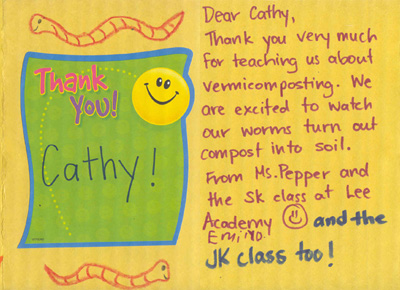 Thank
You!
Cathy!
Dear Cathy,
Thank you very much
for teaching us about
vermicomposting. We
are excited to watch
our worms turn out
compost into soil.
From Ms. Pepper and
the SK class at Lee
Academy and the
JK class too!